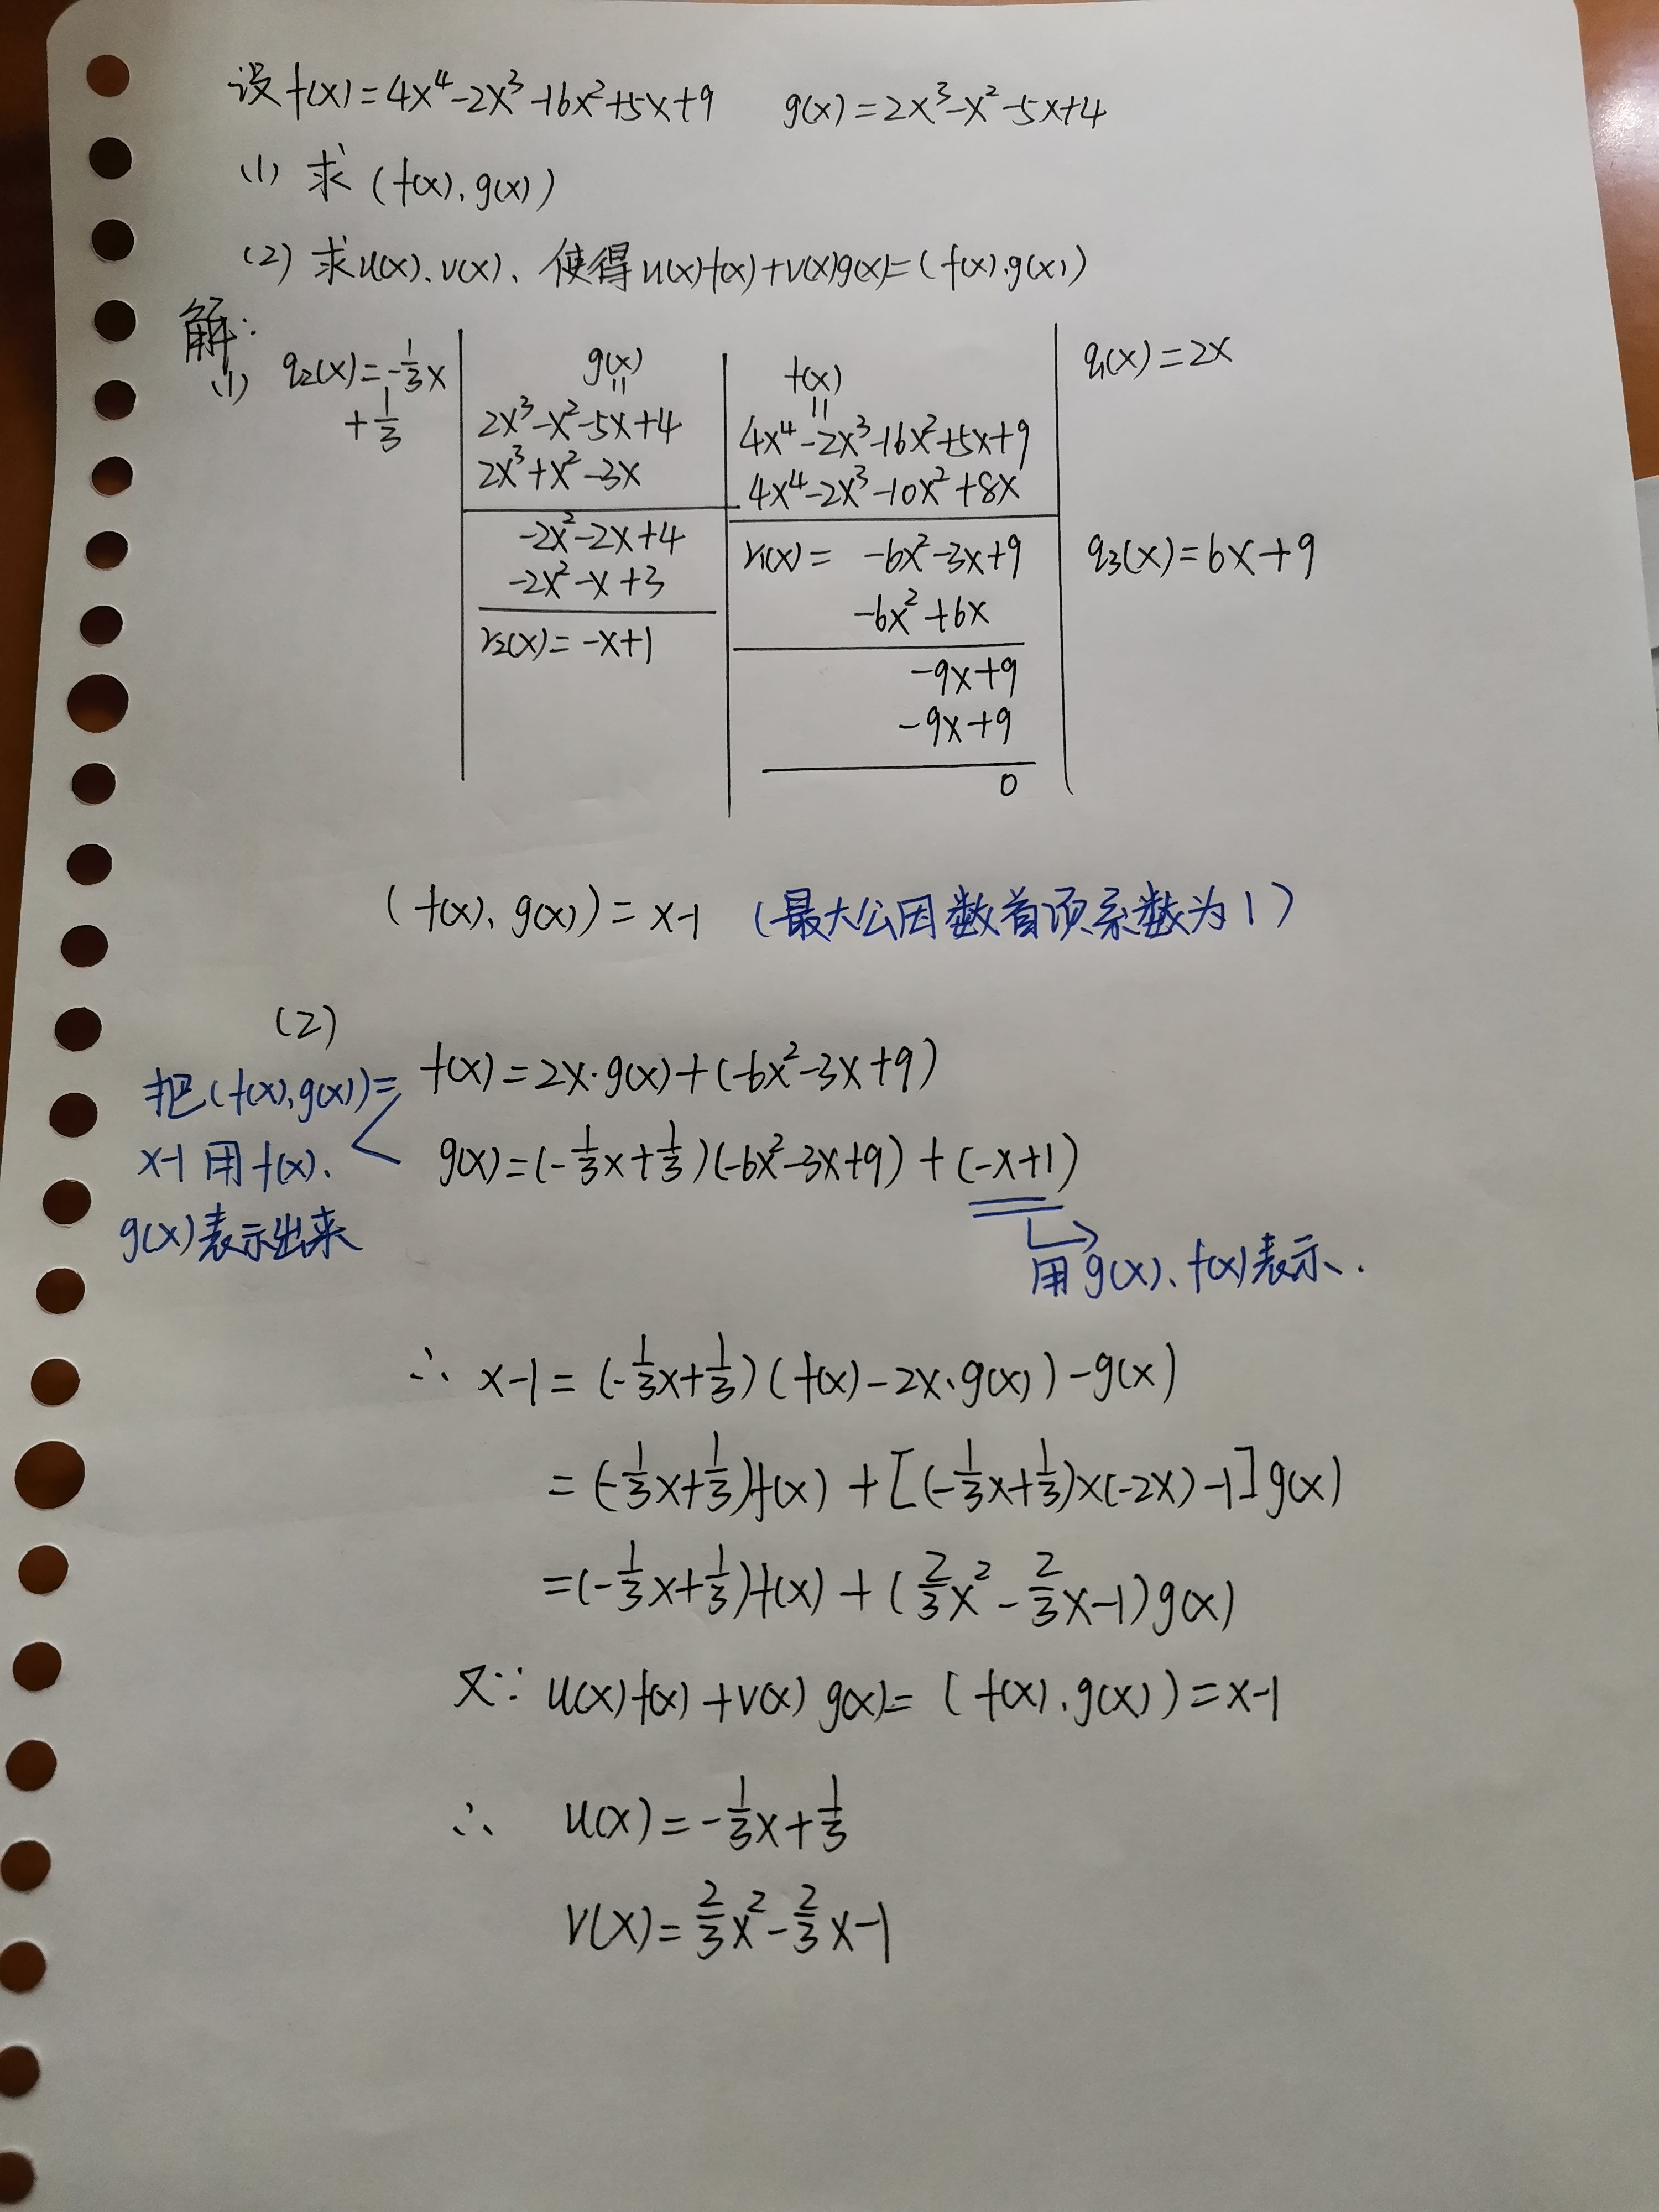 设f(x)=4x⁴-2x³-16x²+5x+9 g(x)=2x³-x²-5x+4
(1) 求 (f(x), g(x))
(2) 求u(x), v(x), 使得u(x)f(x)+v(x)g(x)=(f(x), g(x))
解:
(1) q₂(x)=-1/3x+1/3
g(x)
=
2x³-x²-5x+4
2x³+x²-3x
-2x²-2x+4
-2x²-x+3
r₂(x)=-x+1
f(x)
=
4x⁴-2x³-16x²+5x+9
4x⁴-2x³-10x²+8x
r₁(x)= -6x²-3x+9
-6x²+6x
-9x+9
-9x+9
0
q₁(x)=2x
q₃(x)=6x+9
(f(x), g(x))=x-1 (最大公因数首项系数为1)
(2)
把(f(x),g(x))=
x-1用f(x)、
g(x)表示出来
f(x)=2x·g(x)+(-6x²-3x+9)
g(x)=(-1/3x+1/3)(-6x²-3x+9)+(-x+1)
用g(x)、f(x)表示.
∴ x-1=(-1/3x+1/3)(f(x)-2x·g(x))-g(x)
=(-1/3x+1/3)f(x)+[(-1/3x+1/3)×(-2x)-1]g(x)
=(-1/3x+1/3)f(x)+(2/3x²-2/3x-1)g(x)
又∵ u(x)f(x)+v(x)g(x)=(f(x), g(x))=x-1
∴ u(x)=-1/3x+1/3
v(x)=2/3x²-2/3x-1